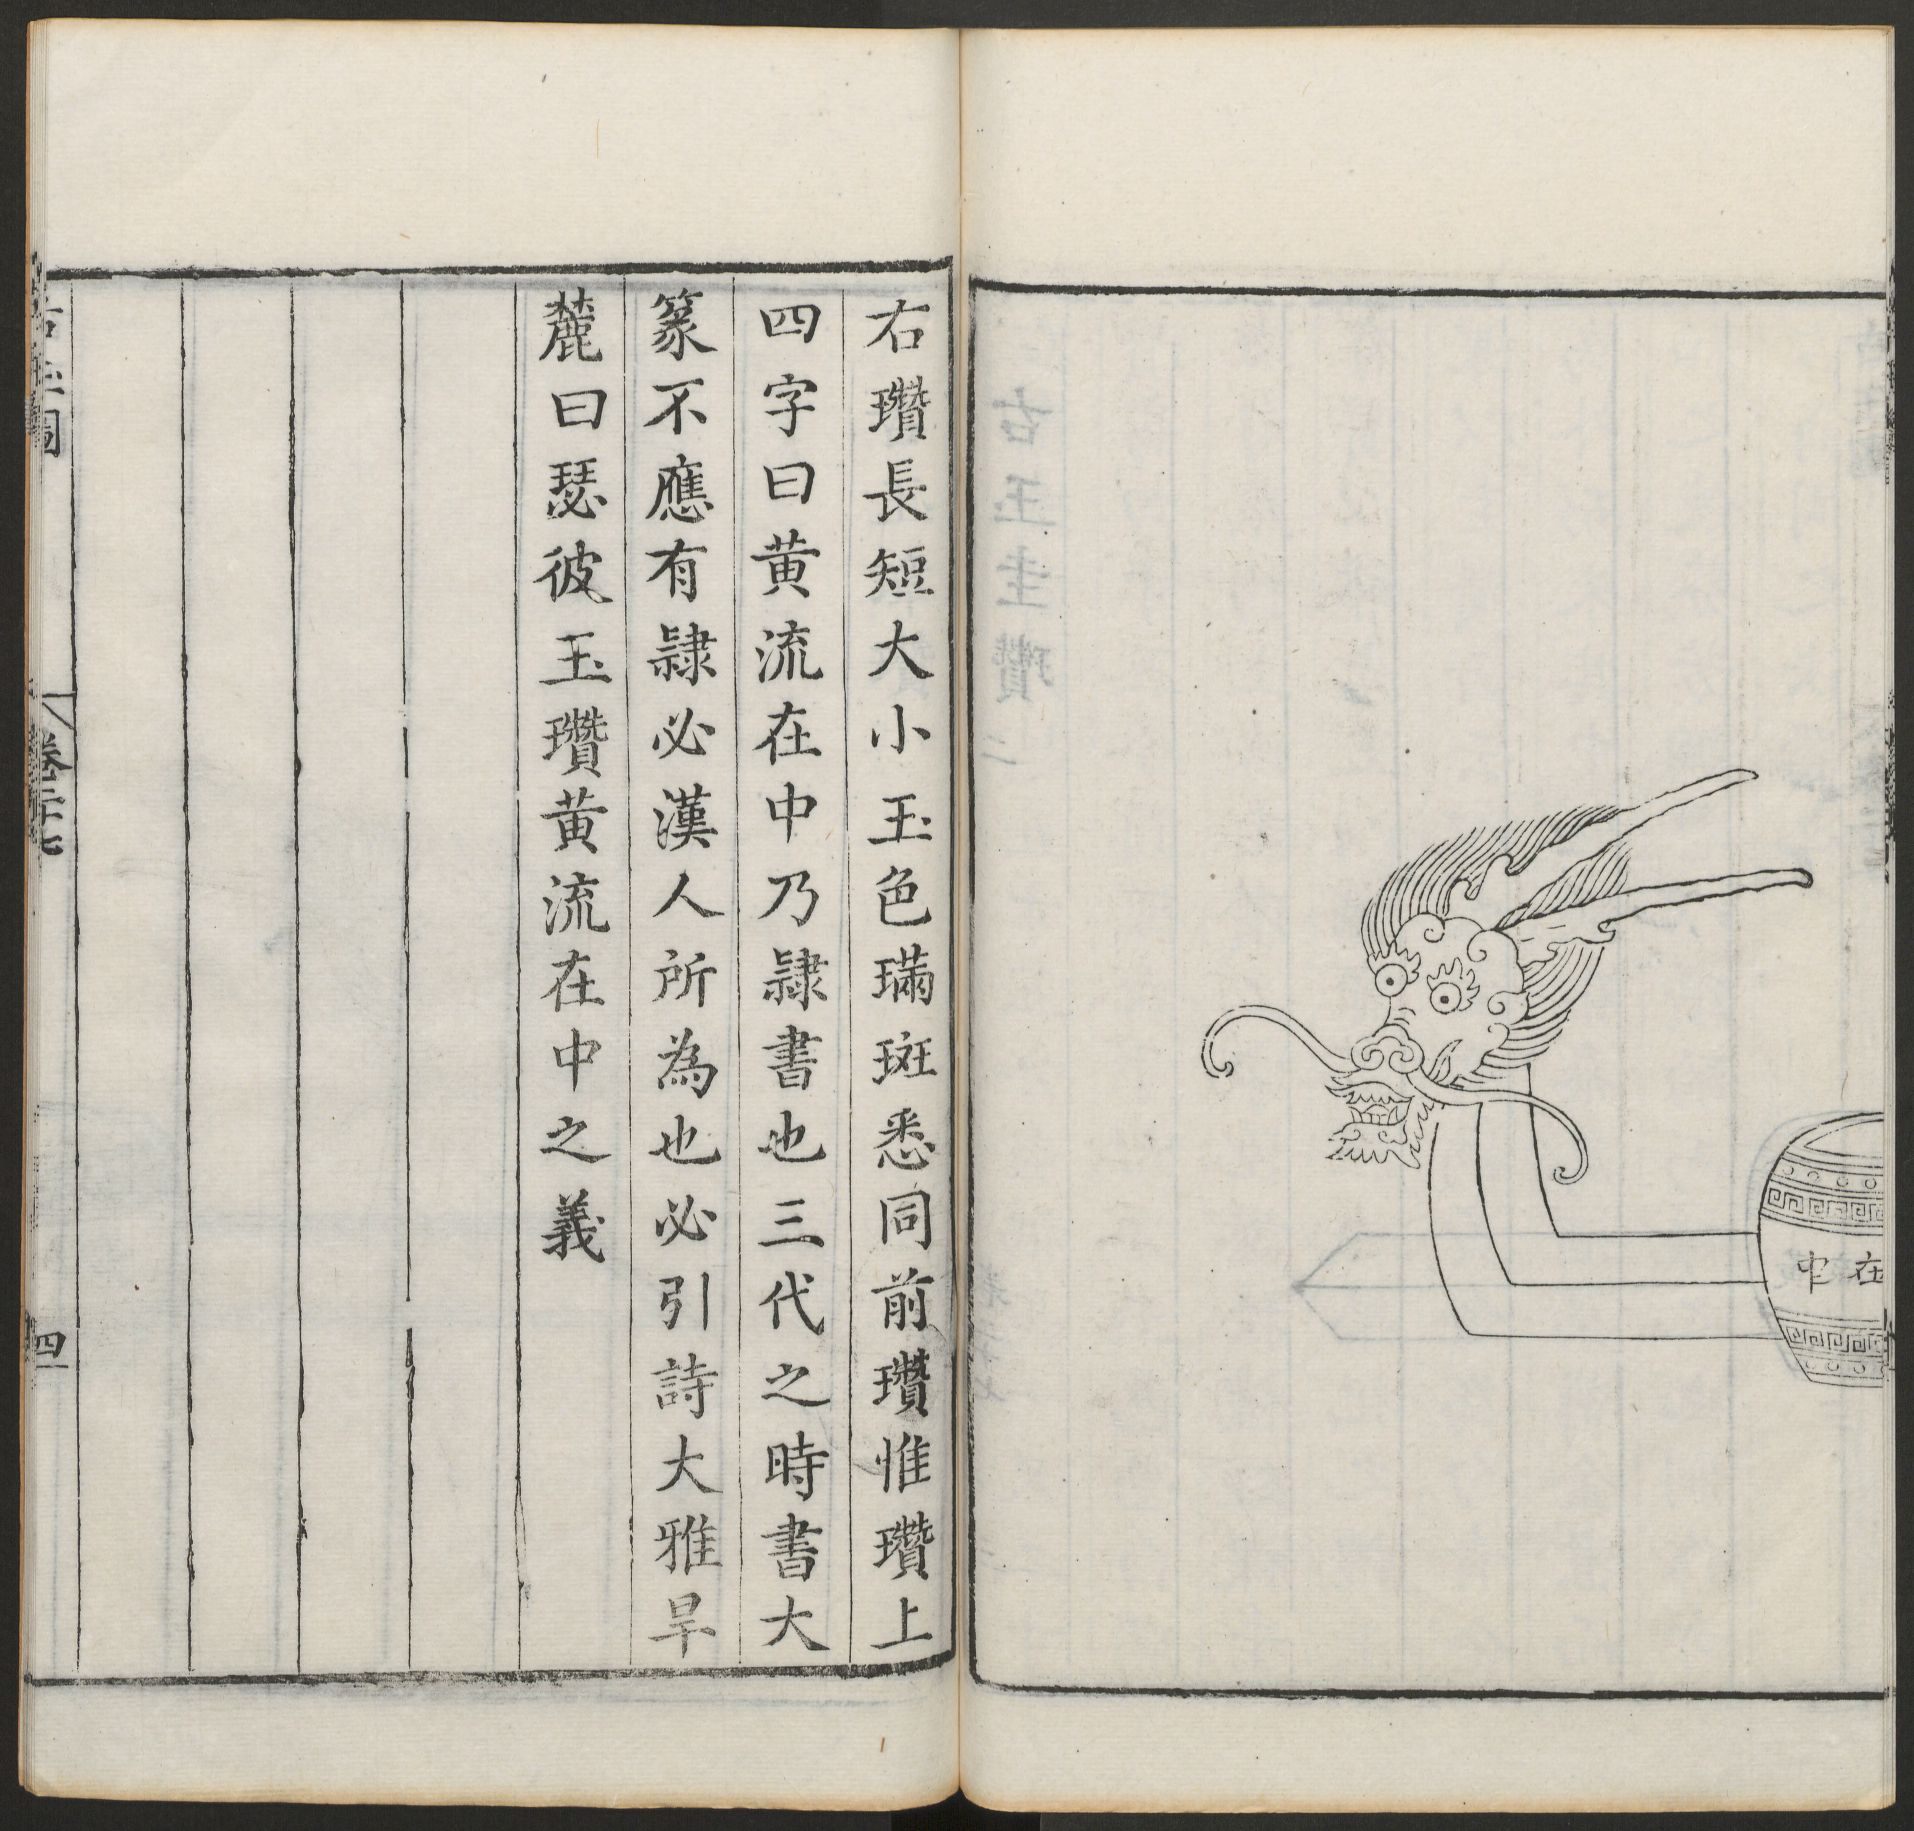 在
中
右瓚長短大小玉色璊斑悉同前瓚惟瓚上
四字曰黃流在中乃隸書也三代之時書大
篆不應有隸必漢人所為也必引詩大雅旱
麓曰瑟彼玉瓚黃流在中之義
卷二十七
四